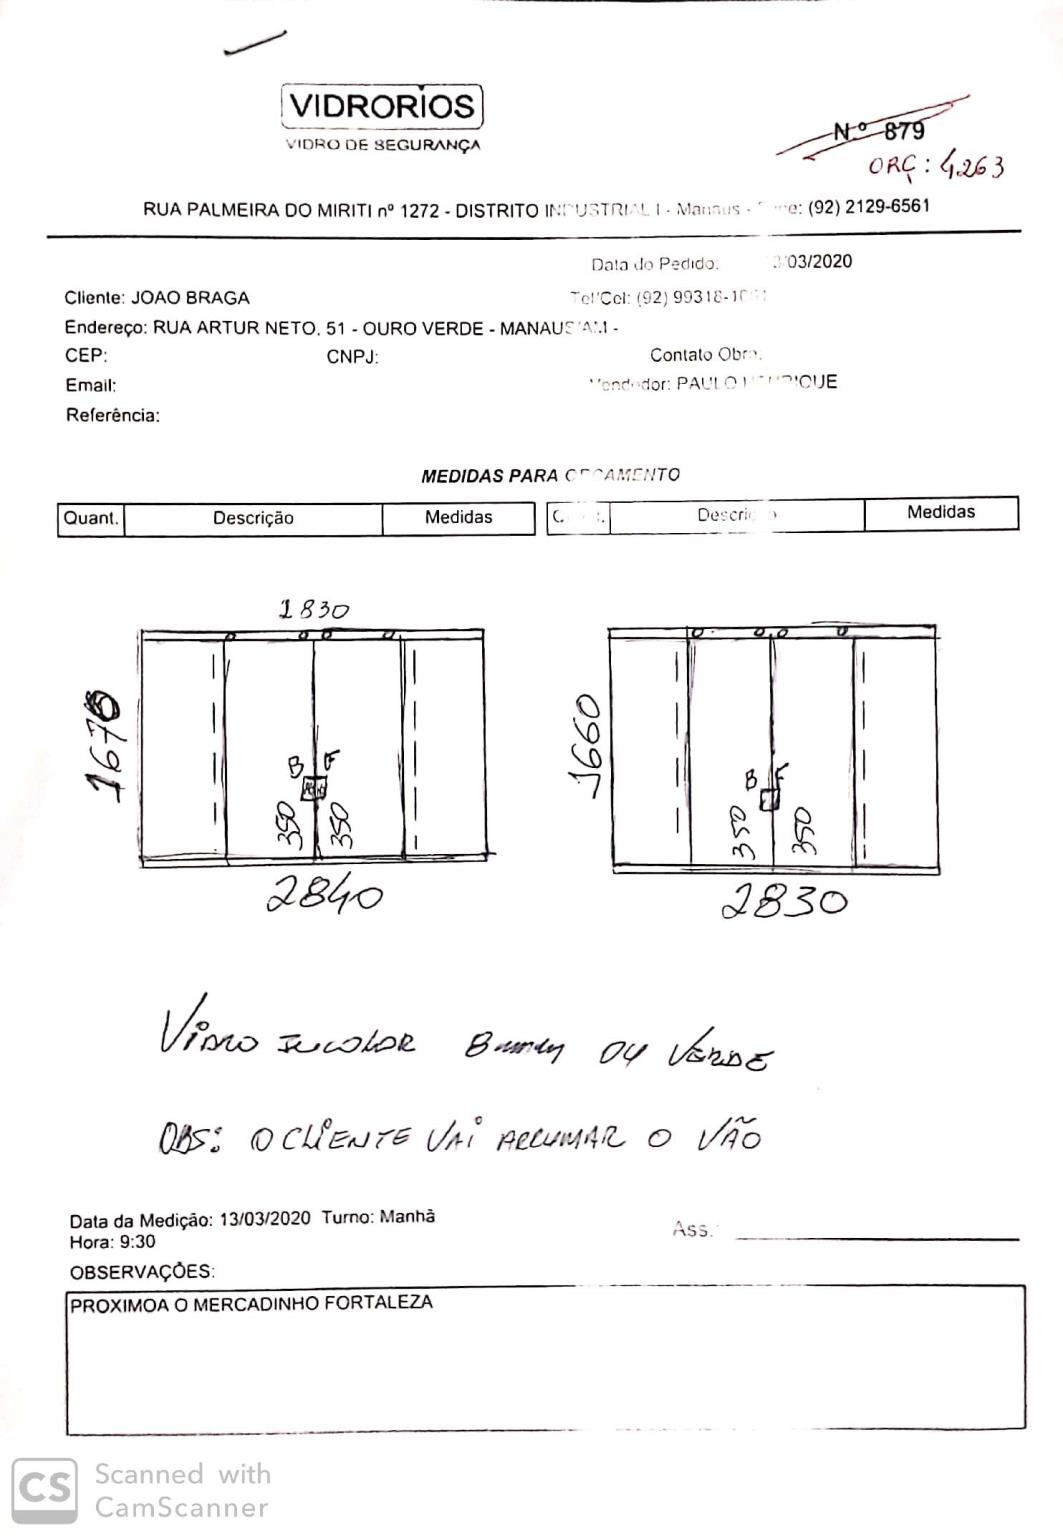 VIDRORIOS
VIDRO DE SEGURANÇA
N.º 879
ORÇ: 4263
RUA PALMEIRA DO MIRITI nº 1272 - DISTRITO INDUSTRIAL I - Manaus - Fone: (92) 2129-6561
Data do Pedido: /03/2020
Cliente: JOAO BRAGA
Tel/Cel: (92) 99318-
Endereço: RUA ARTUR NETO, 51 - OURO VERDE - MANAUS/AM -
CEP:
CNPJ:
Contato Obra:
Email:
Vendedor: PAULO HENRIQUE
Referência:
MEDIDAS PARA ORÇAMENTO
Quant. Descrição Medidas Quant. Descrição Medidas
1830
1670
B F
350 350
2840
1660
B F
350 350
2830
VIDRO INCOLOR 04 VERDE
OBS: O CLIENTE VAI ARRUMAR O VÃO
Data da Medição: 13/03/2020 Turno: Manhã
Hora: 9:30
Ass.:
OBSERVAÇÕES:
PROXIMOA O MERCADINHO FORTALEZA
CS Scanned with
CamScanner